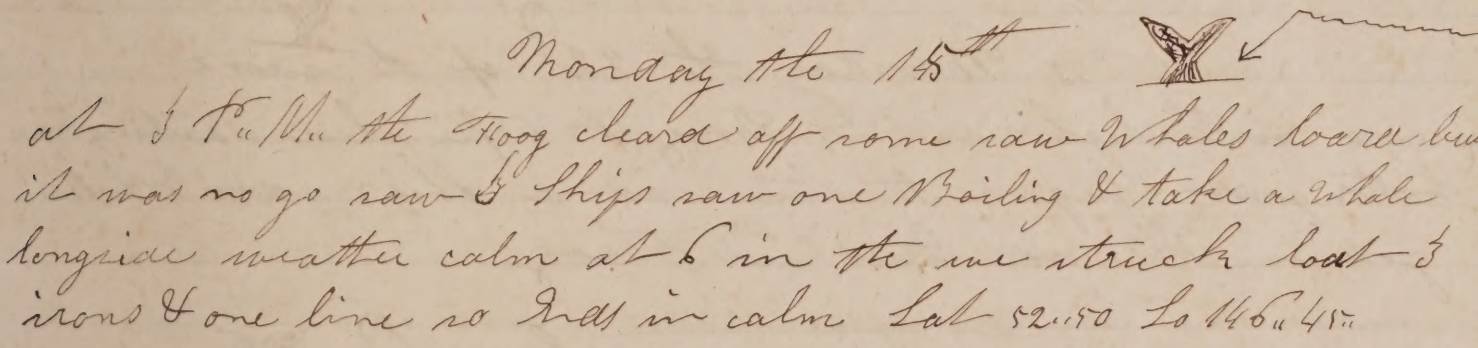 Monday the 15th
at 3 P,,M,, the Foog cleard off some saw Whales loard but
it was no go saw 3 Ships saw one Boiling & take a Whale
longside weather calm at 6 in the we struck loat 3
irons & one line so Ends in calm Lat 52,,50 Lo 146,,45,,